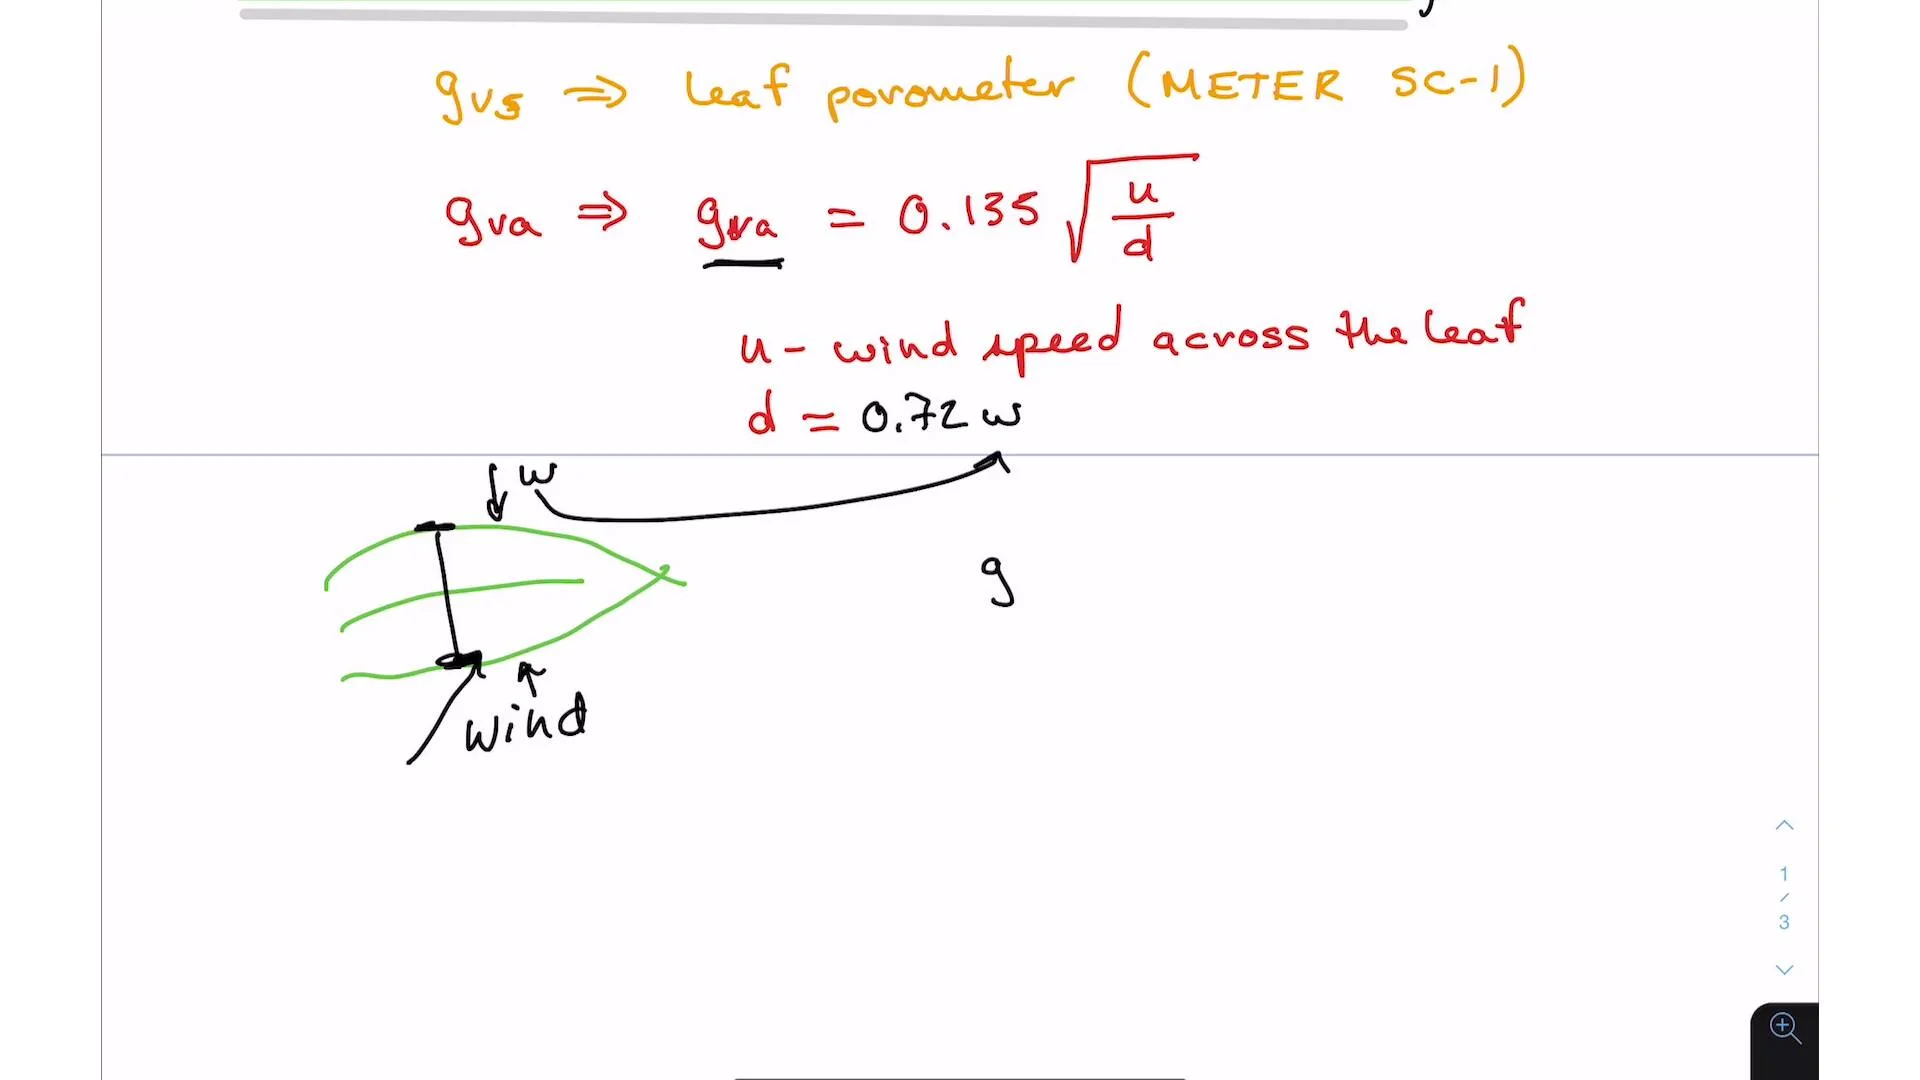 gvs ⇒ leaf porometer (METER SC-1)
gva ⇒ gva = 0.135 √(u/d)
u - wind speed across the leaf
d = 0.72 w
w
g
wind
1
/
3